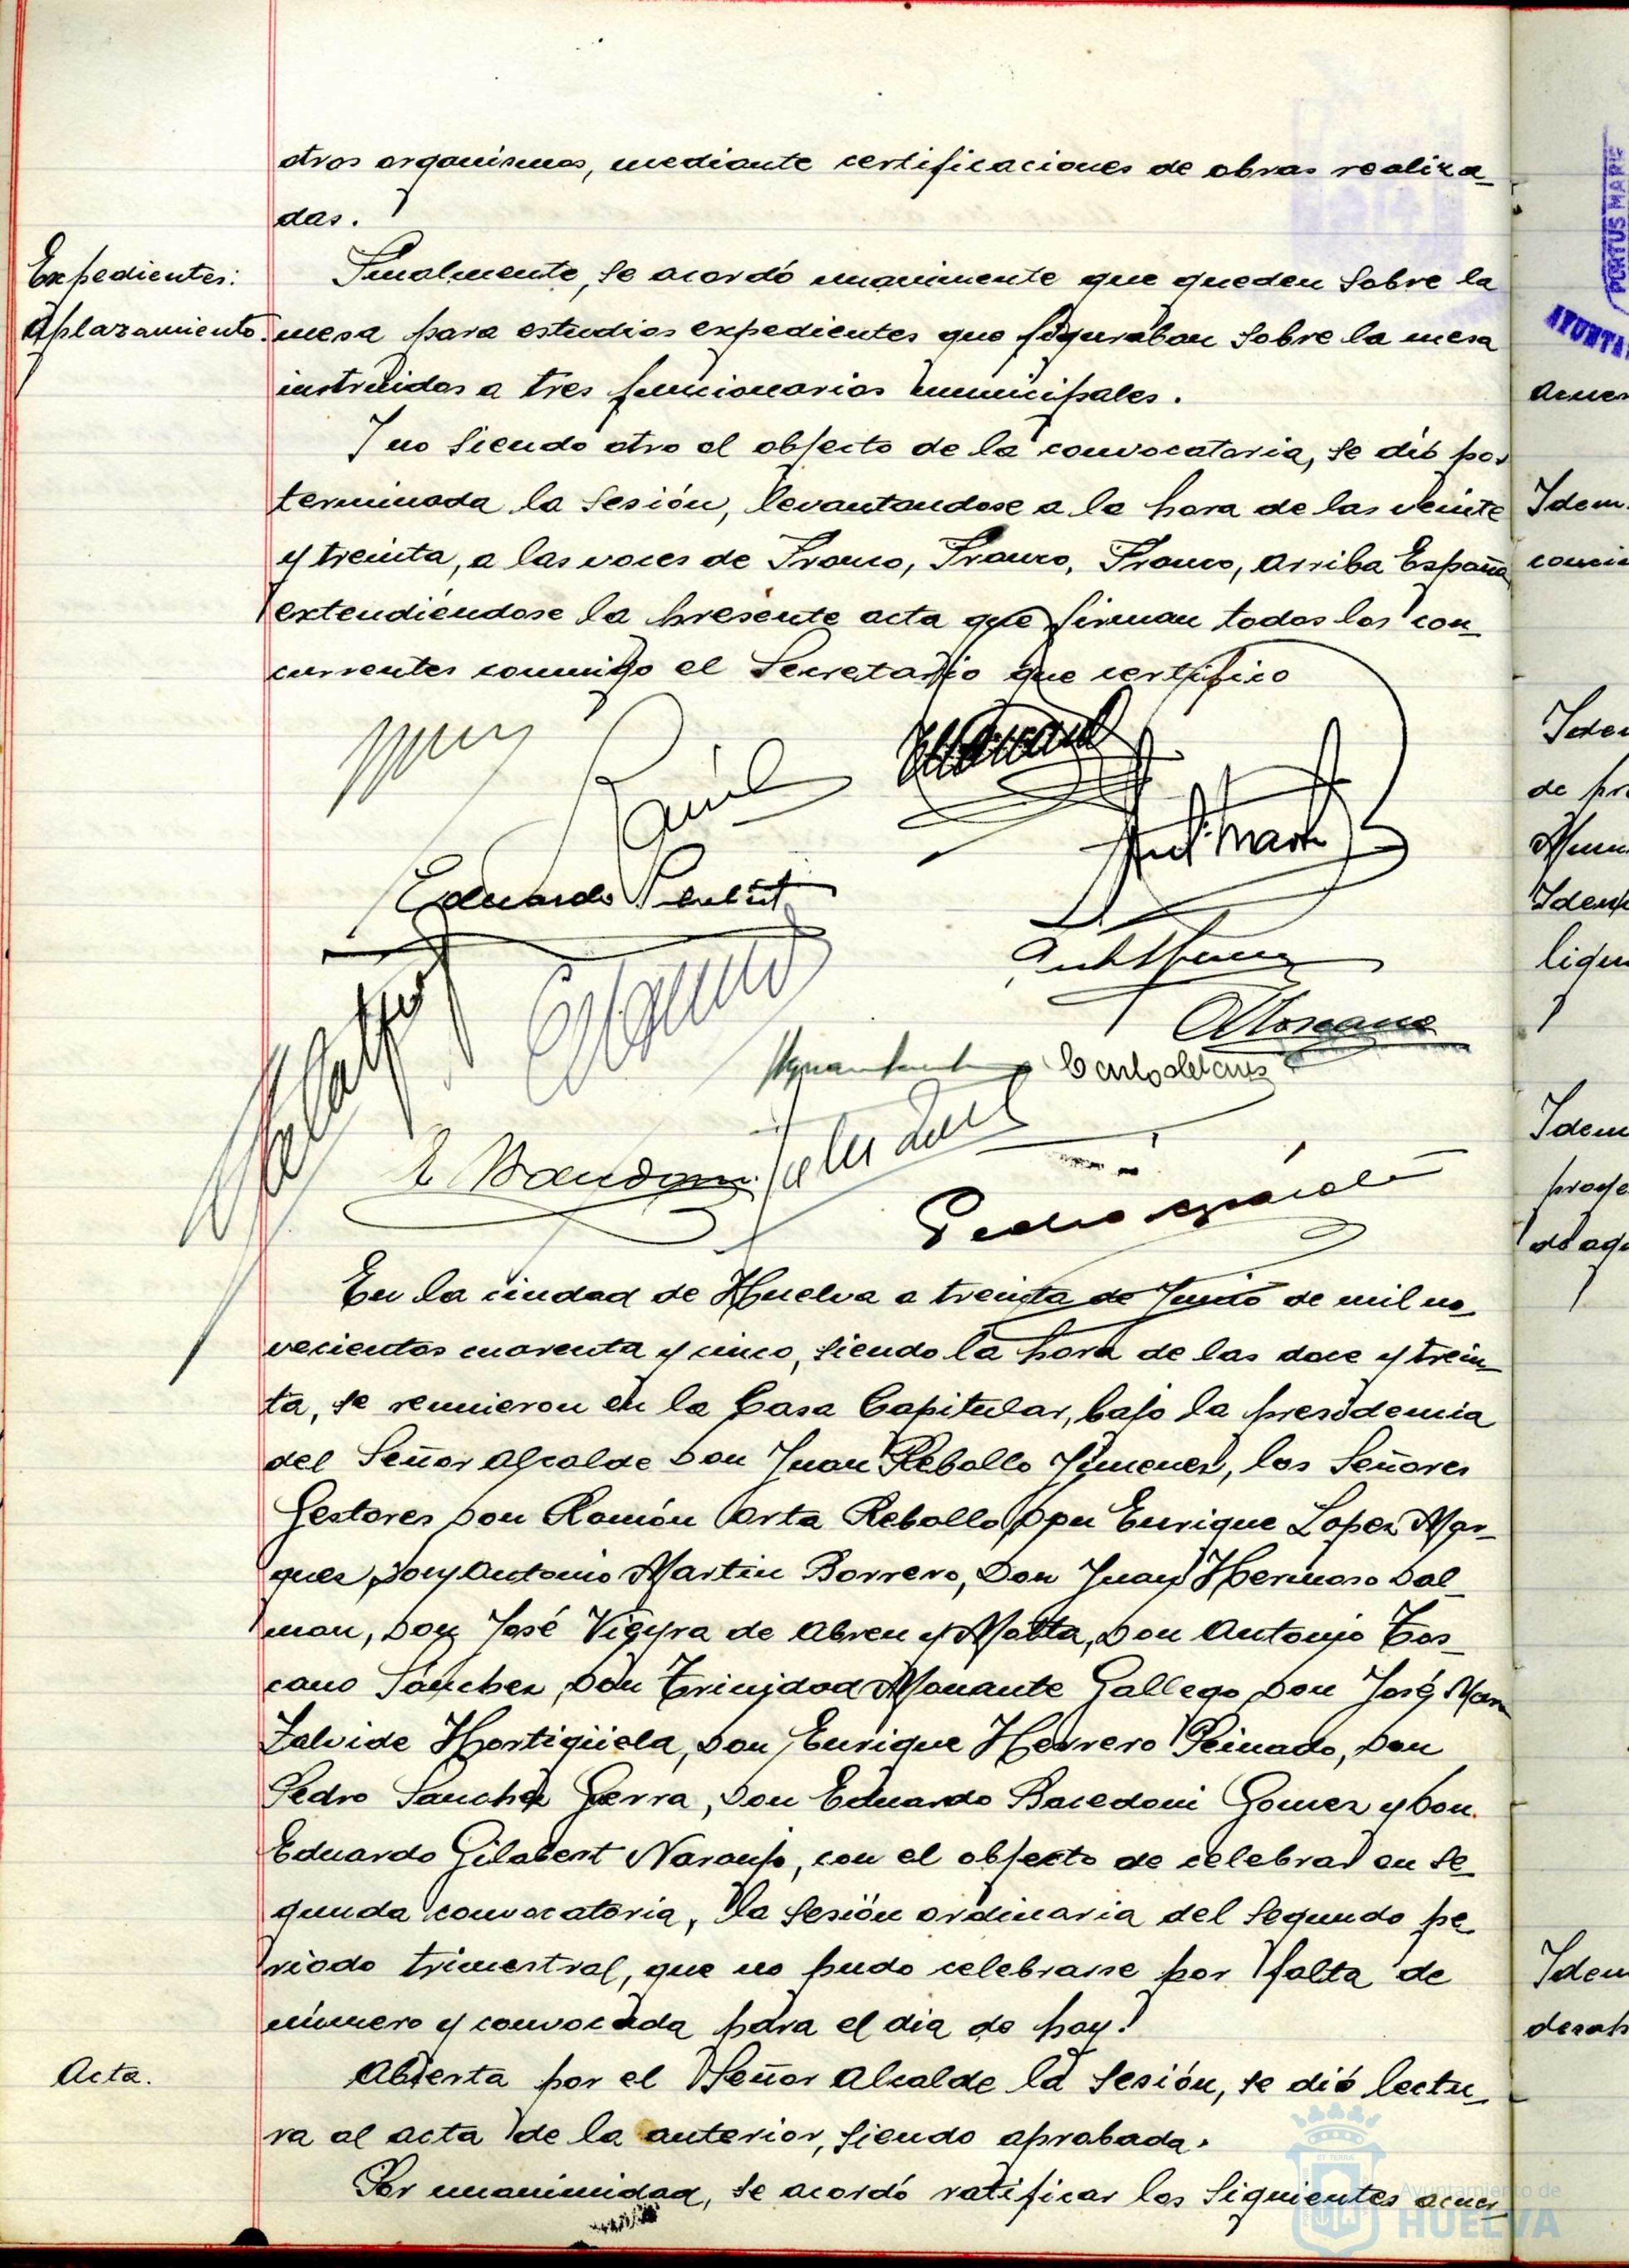 otros organismos, mediante certificaciones de obras realiza-
das.
Expedientes:
Aplazamiento.
Finalmente, se acordó unanimente que queden sobre la
mesa para estudios expedientes que figuraban sobre la mesa
instruidos a tres funcionarios municipales.
Y no siendo otro el objecto de la convocatoria, se dió por
terminada la sesión, levantandose a la hora de las veinte
y treinta, a las voces de Franco, Franco, Franco, Arriba España
extendiéndose la presente acta que firman todos los con-
currentes conmigo el Secretario que certifico
Eduardo
Pedro
En la ciudad de Huelva a treinta de Junio de mil no-
vecientos cuarenta y cinco, siendo la hora de las doce y trein-
ta, se reunieron en la Casa Capitular, bajo la presidencia
del Señor Alcalde Don Juan Rebollo Jimenez, los Señores
Gestores Don Ramón Orta Rebollo, Don Enrique Lopez Mar-
quez, Don Antonio Martin Borrero, Don Juan Hermoso Dal-
mau, Don José Vieyra de Abreu y Motta, Don Antonio Tos-
cano Sánchez, Don Trinidad Manante Gallego, Don José Mar
Zalvide Hortigüela, Don Enrique Herrero Peinado, Don
Pedro Sanchez Gerra, Don Eduardo Bacedoni Gomez y Don
Eduardo Gilabert Naranjo, con el objecto de celebrar en se-
gunda convocatoria, la sesión ordinaria del segundo pe-
riodo trimestral, que no pudo celebrarse por falta de
número y convocada para el dia de hoy.
Acta.
Abierta por el Señor Alcalde la sesión, se dió lectu-
ra al acta de la anterior, siendo aprobada.
Por unanimidad, se acordó ratificar los siguientes acuer
Ayuntamiento de
HUELVA
PORTUS MARIS
AYUNTA
Idem
Idem
de pr
Idem
Idem
Idem